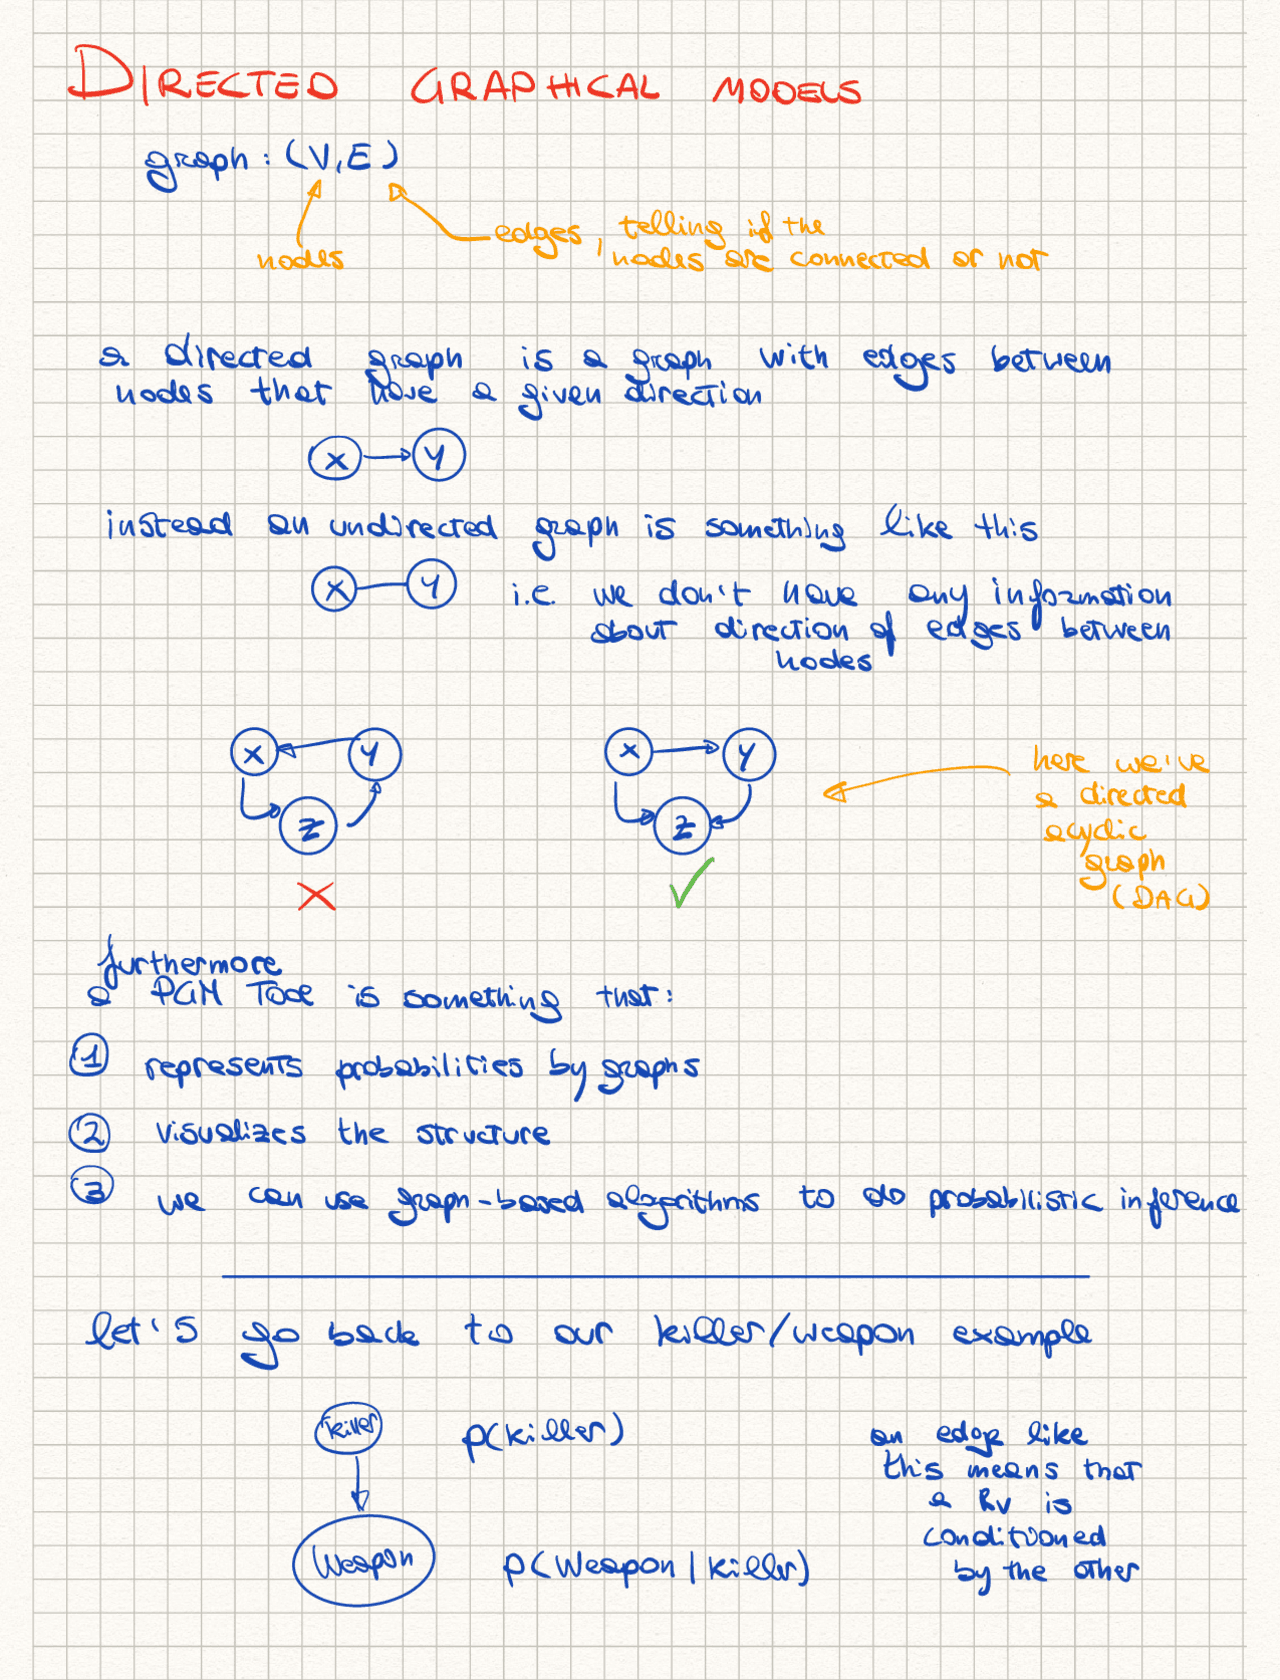 DIRECTED GRAPHICAL MODELS
graph: (V,E)
nodes
edges, telling if the
nodes are connected or not
a directed graph is a graph with edges between
nodes that have a given direction
X Y
instead an undirected graph is something like this
X Y
i.e. we don't have any information
about direction of edges between
nodes
X Y
Z
X Y
Z
here we've
a directed
acyclic
graph
(DAG)
furthermore
a PGM Tool is something that:
1 represents probabilities by graphs
2 visualizes the structure
3 we can use graph-based algorithms to do probabilistic inference
let's go back to our killer/weapon example
killer
p(killer)
Weapon
p(Weapon|killer)
an edge like
this means that
a RV is
conditioned
by the other